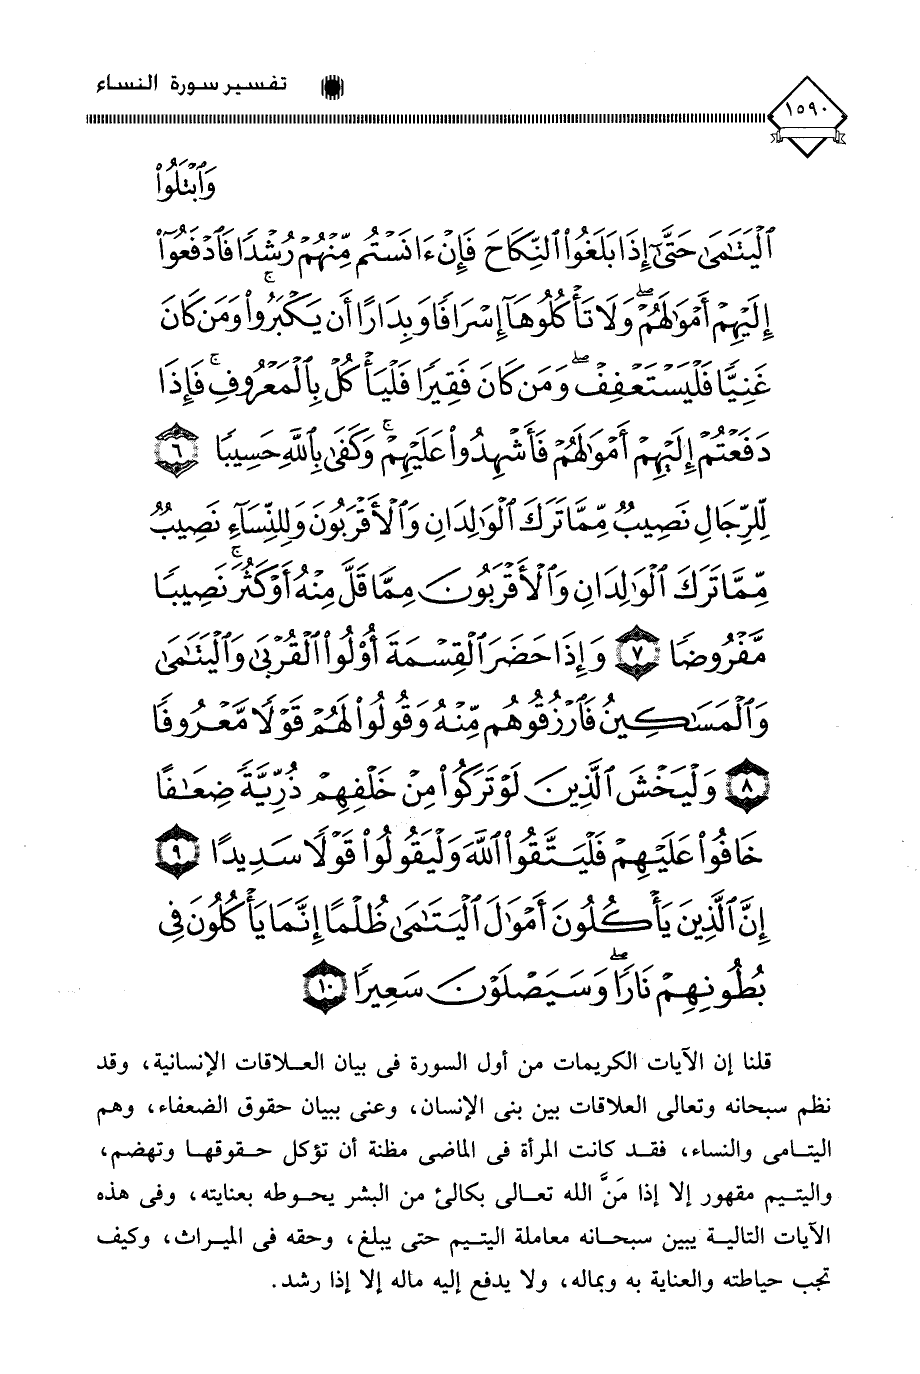 تفسير سورة النساء
١٥٩٠
وَٱبْتَلُوا۟
ٱلْيَتَـٰمَىٰ حَتَّىٰٓ إِذَا بَلَغُوا۟ ٱلنِّكَاحَ فَإِنْ ءَانَسْتُم مِّنْهُمْ رُشْدًا فَٱدْفَعُوٓا۟
إِلَيْهِمْ أَمْوَٰلَهُمْ ۖ وَلَا تَأْكُلُوهَآ إِسْرَافًا وَبِدَارًا أَن يَكْبَرُوا۟ ۚ وَمَن كَانَ
غَنِيًّا فَلْيَسْتَعْفِفْ ۖ وَمَن كَانَ فَقِيرًا فَلْيَأْكُلْ بِٱلْمَعْرُوفِ ۚ فَإِذَا
دَفَعْتُمْ إِلَيْهِمْ أَمْوَٰلَهُمْ فَأَشْهِدُوا۟ عَلَيْهِمْ ۚ وَكَفَىٰ بِٱللَّهِ حَسِيبًا ٦
لِّلرِّجَالِ نَصِيبٌ مِّمَّا تَرَكَ ٱلْوَٰلِدَانِ وَٱلْأَقْرَبُونَ وَلِلنِّسَآءِ نَصِيبٌ
مِّمَّا تَرَكَ ٱلْوَٰلِدَانِ وَٱلْأَقْرَبُونَ مِمَّا قَلَّ مِنْهُ أَوْ كَثُرَ ۚ نَصِيبًا
مَّفْرُوضًا ٧ وَإِذَا حَضَرَ ٱلْقِسْمَةَ أُو۟لُوا۟ ٱلْقُرْبَىٰ وَٱلْيَتَـٰمَىٰ
وَٱلْمَسَـٰكِينُ فَٱرْزُقُوهُم مِّنْهُ وَقُولُوا۟ لَهُمْ قَوْلًا مَّعْرُوفًا
٨ وَلْيَخْشَ ٱلَّذِينَ لَوْ تَرَكُوا۟ مِنْ خَلْفِهِمْ ذُرِّيَّةً ضِعَـٰفًا
خَافُوا۟ عَلَيْهِمْ فَلْيَتَّقُوا۟ ٱللَّهَ وَلْيَقُولُوا۟ قَوْلًا سَدِيدًا ٩
إِنَّ ٱلَّذِينَ يَأْكُلُونَ أَمْوَٰلَ ٱلْيَتَـٰمَىٰ ظُلْمًا إِنَّمَا يَأْكُلُونَ فِى
بُطُونِهِمْ نَارًا ۖ وَسَيَصْلَوْنَ سَعِيرًا ١٠
قلنا إن الآيات الكريمات من أول السورة فى بيان العلاقات الإنسانية، وقد
نظم سبحانه وتعالى العلاقات بين بنى الإنسان، وعنى ببيان حقوق الضعفاء، وهم
اليتامى والنساء، فقد كانت المرأة فى الماضى مظنة أن تؤكل حقوقها وتهضم،
واليتيم مقهور إلا إذا مَنَّ الله تعالى بكالئ من البشر يحوطه بعنايته، وفى هذه
الآيات التالية يبين سبحانه معاملة اليتيم حتى يبلغ، وحقه فى الميراث، وكيف
تجب حياطته والعناية به وبماله، ولا يدفع إليه ماله إلا إذا رشد.